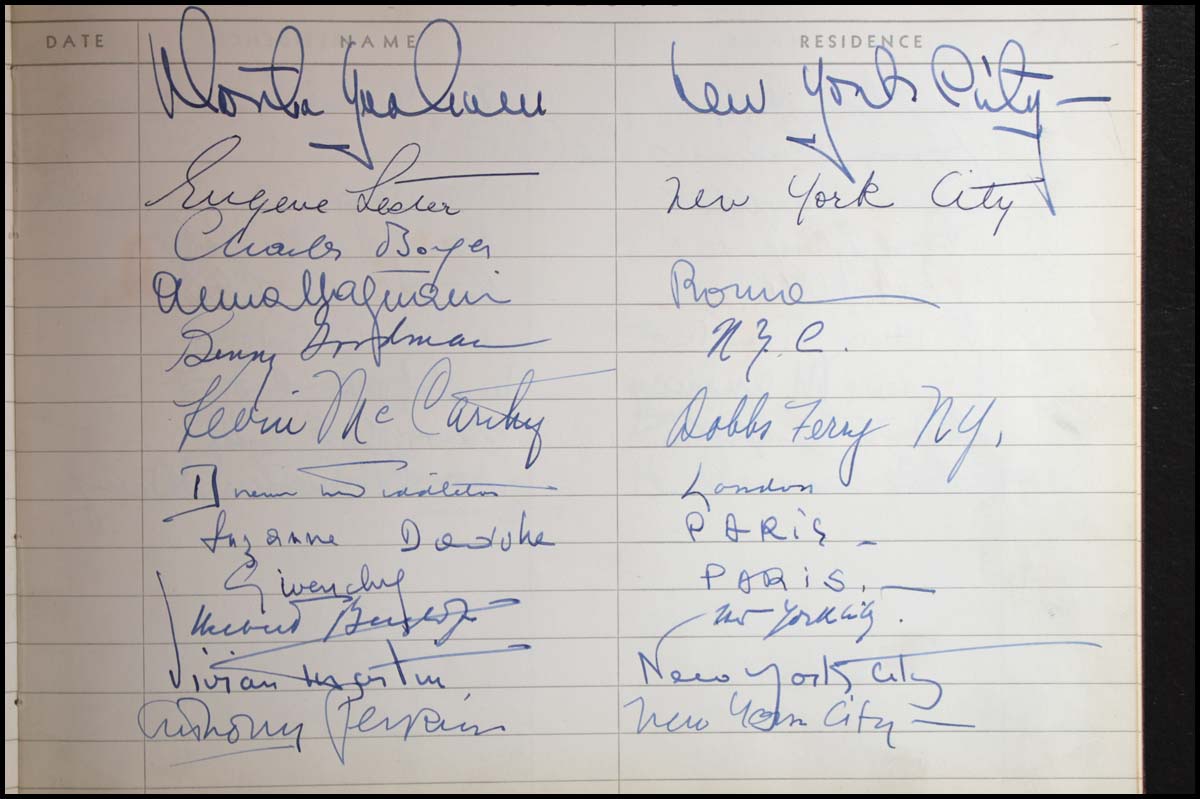 DATE NAME RESIDENCE
Martha Graham New York City —
Eugene Lester New York City
Charles Boyer
Anna Magnani Roma
Benny Goodman N.Y.C.
Kevin McCarthy Dobbs Ferry NY,
Middleton London
Suzanne PARIS —
Givenchy PARIS. —
Herbert New York City.
Vivian Martin New York City
Anthony Perkins New York City —